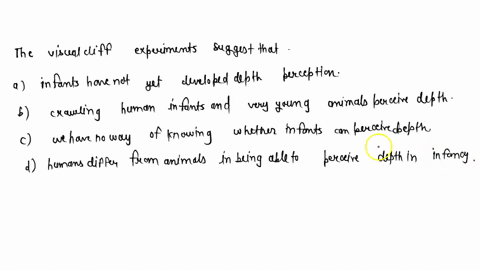 The visual cliff experiments suggest that.
a) infants have not yet developed depth perception.
b) crawling human infants and very young animals perceive depth.
c) we have no way of knowing whether infants can perceive depth
d) humans differ from animals in being able to perceive depth in infancy.